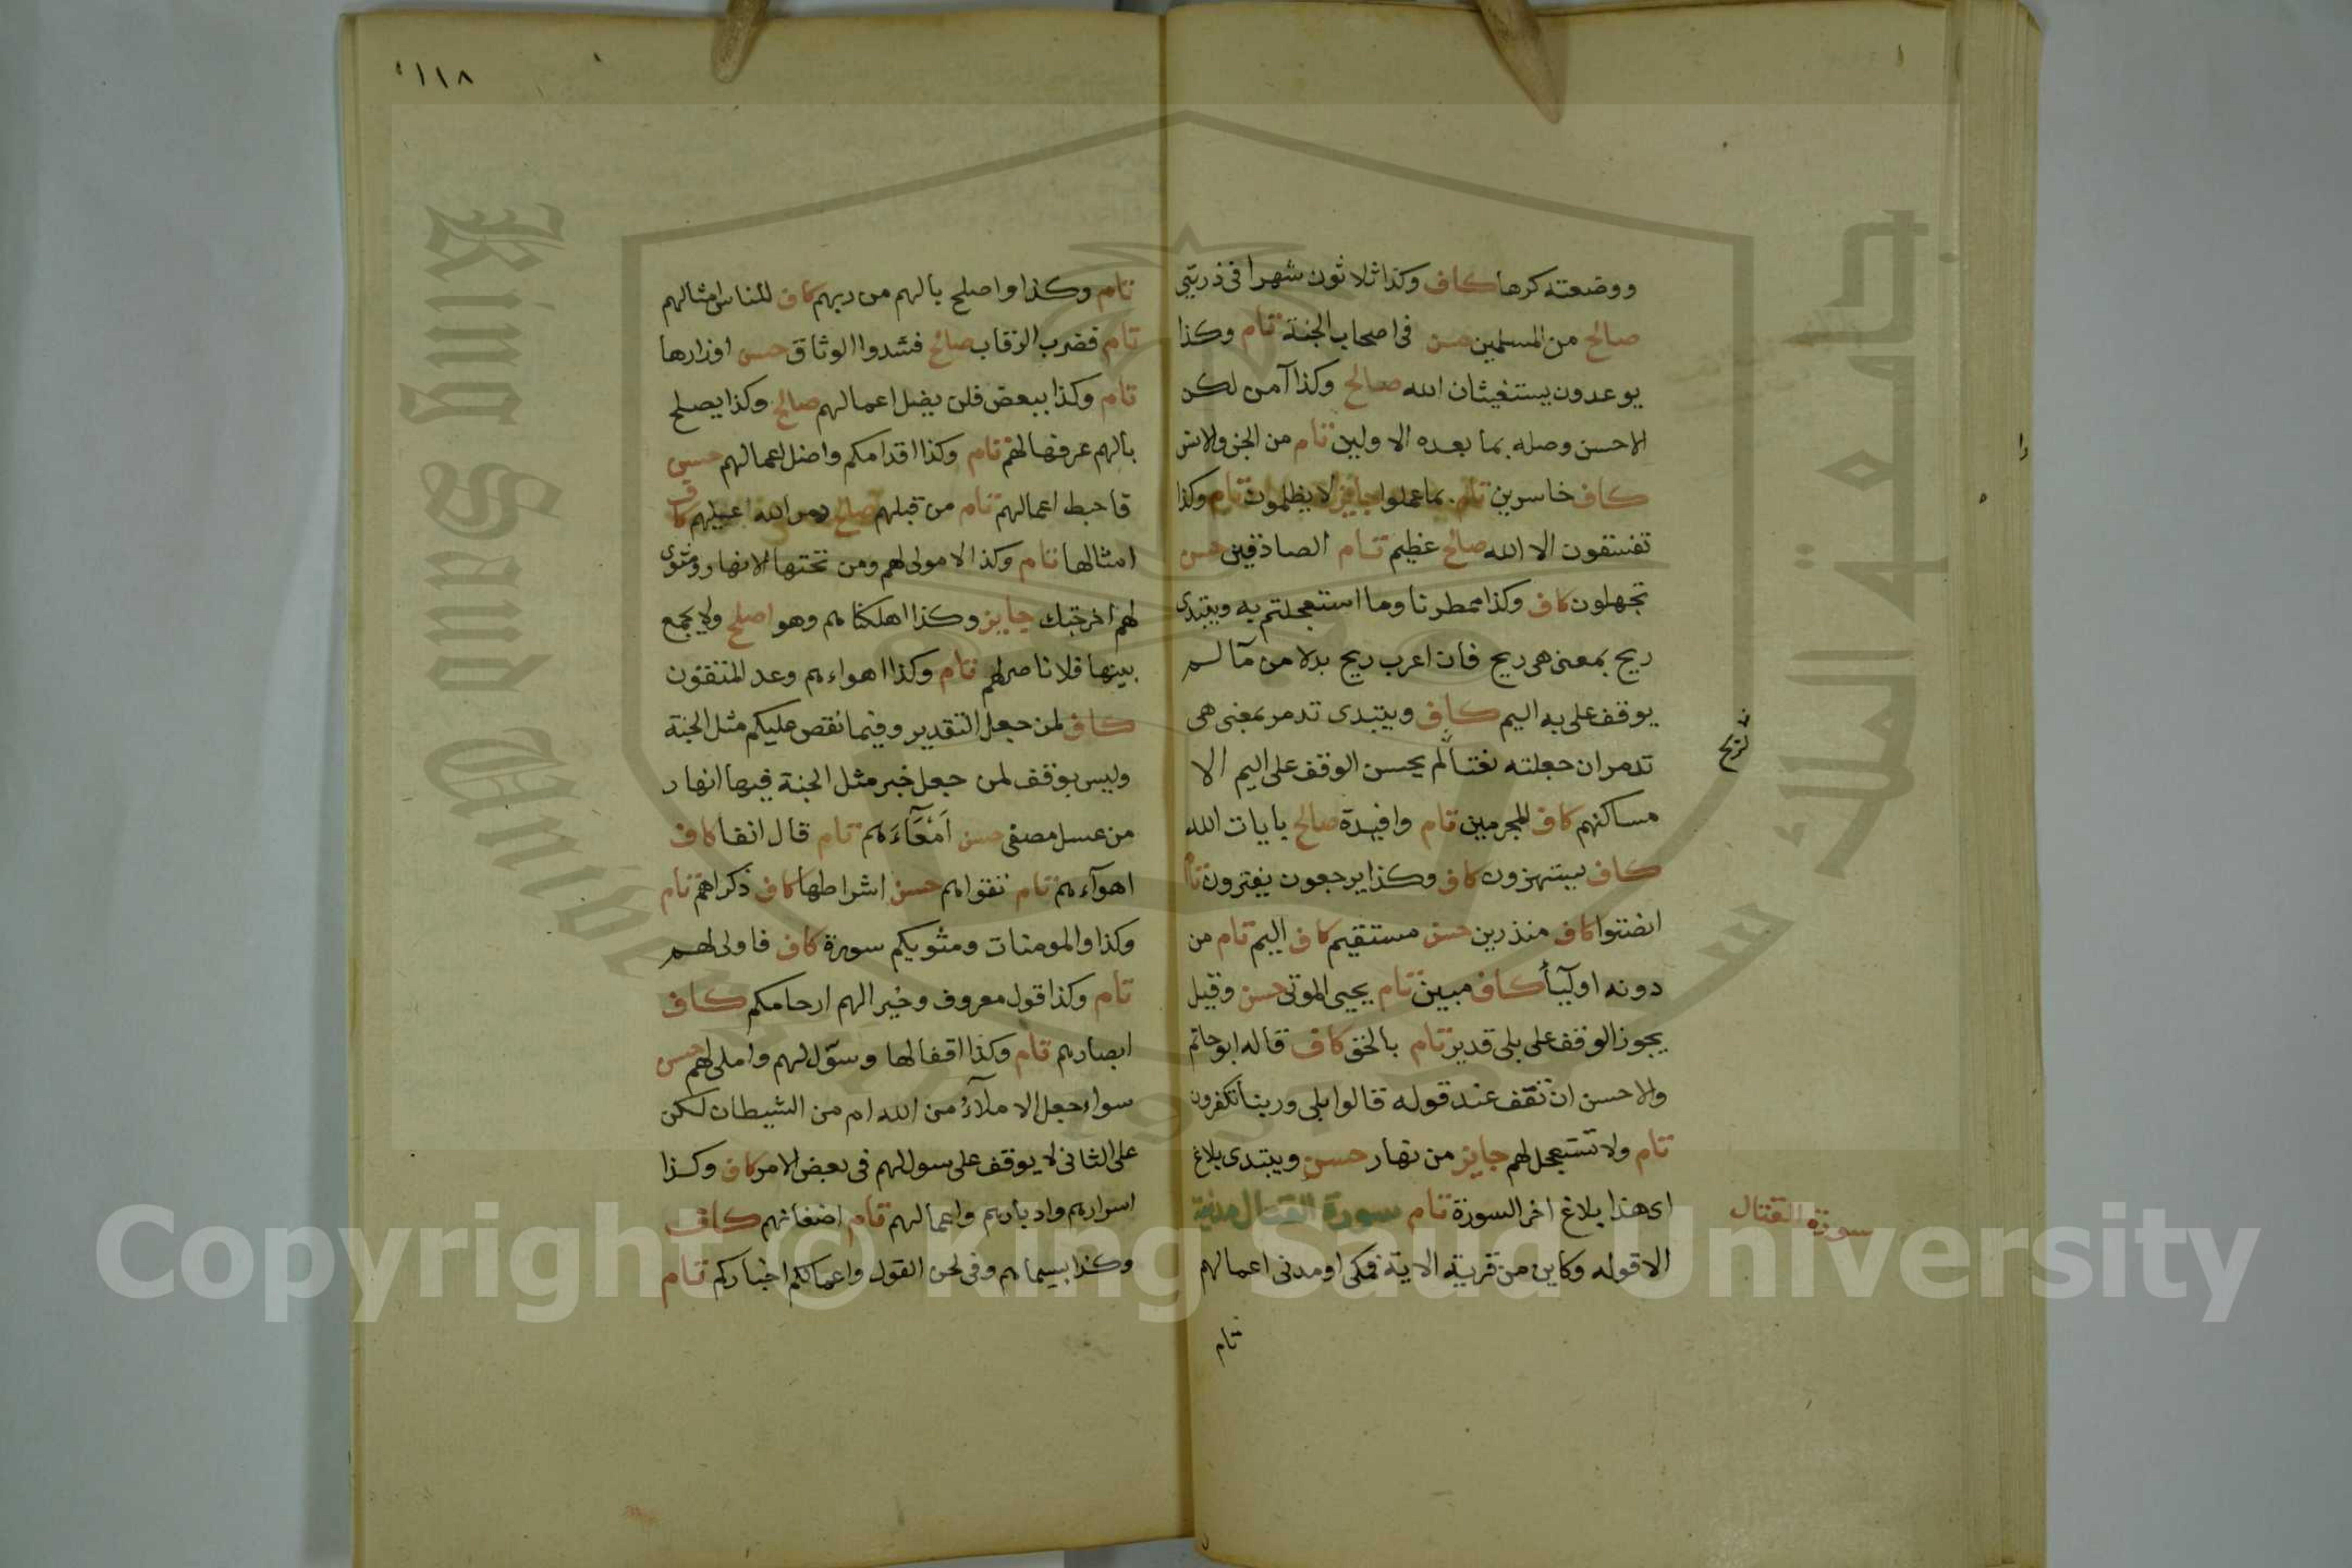 ووضعته كرها كاف وكذا ثلاثون شهرا في ذريتي
صالح من المسلمين حسن في اصحاب الجنة تام وكذا
يوعدون يستغيثان الله صالح وكذا آمن لكن
الاحسن وصله بما بعده الاولين تام من الجن والانس
كاف خاسرين تام بما عملوا جايز لا يظلمون تام وكذا
تفسقون الا الله صالح عظيم تام الصادقين حسن
تجهلون كاف وكذا ممطرنا وما استعجلتم به ويبتدى
ريح بمعنى هى ريح فان اعرب ريح بدلا من ما لم
يوقف على به اليم كاف ويبتدى تدمر بمعنى هى
تدمر ان جعلته نعتا لم يحسن الوقف على اليم الا
لريح
مساكنهم كاف المجرمين تام وافيدة صالح بايات الله
كاف يستهزون كاف وكذا يرجعون يفترون تام
انصتوا كاف منذرين حسن مستقيم كاف اليم تام من
دونه اوليآ كاف مبين تام يحيى الموتى حسن وقيل
يجوز الوقف على بلى قدير تام بالحق كاف قاله ابو حاتم
والاحسن ان تقف عند قوله قالوا بلى وربنا تكفرون
تام ولا تستعجل لهم جايز من نهار حسن ويبتدى بلاغ
اى هذا بلاغ اخر السورة تام سورة القتال مدنية
سورة القتال
الا قوله وكاين من قرية الاية فمكى او مدنى اعمالهم
تام
١١٨
تام وكذا واصلح بالهم من ربهم كاف للناس امثالهم
تام فضرب الرقاب صالح فشدوا الوثاق حسن اوزارها
تام وكذا ببعض فلن يضل اعمالهم صالح وكذا يصلح
بالهم عرفها لهم تام وكذا اقدامكم واضل اعمالهم حسن
فاحبط اعمالهم تام من قبلهم صالح دمر الله عليهم كاف
امثالها تام وكذا لا مولى لهم ومن تحتها الانهار ومثوى
لهم اخرجتك جايز وكذا اهلكناهم وهو اصلح ولا يجمع
بينها فلا ناصر لهم تام وكذا اهواءهم وعد المتقون
كاف لمن جعل التقدير وفيما نقص عليكم مثل الجنة
وليس بوقف لمن جعل خبر مثل الجنة فيها انهار
من عسل مصفى حسن امعآءهم تام قال انفا كاف
اهوآءهم تام تقواهم حسن اشراطها كاف ذكراهم تام
وكذا والمومنات ومثويكم سورة كاف فاولى لهم
تام وكذا قول معروف وخيرا لهم ارحامكم كاف
ابصارهم تام وكذا اقفالها وسوّل لهم واملى لهم حسن
سواء جعل الاملآء من الله ام من الشيطان لكن
على الثانى لا يوقف على سول لهم في بعض الامر كاف وكذا
اسرارهم وادبارهم واعمالهم تام اضغانهم كاف
وكذا بسيماهم وفى لحن القول واعمالكم اخباركم تام
King Saud University
جامعة الملك سعود
1957
Copyright © King Saud University